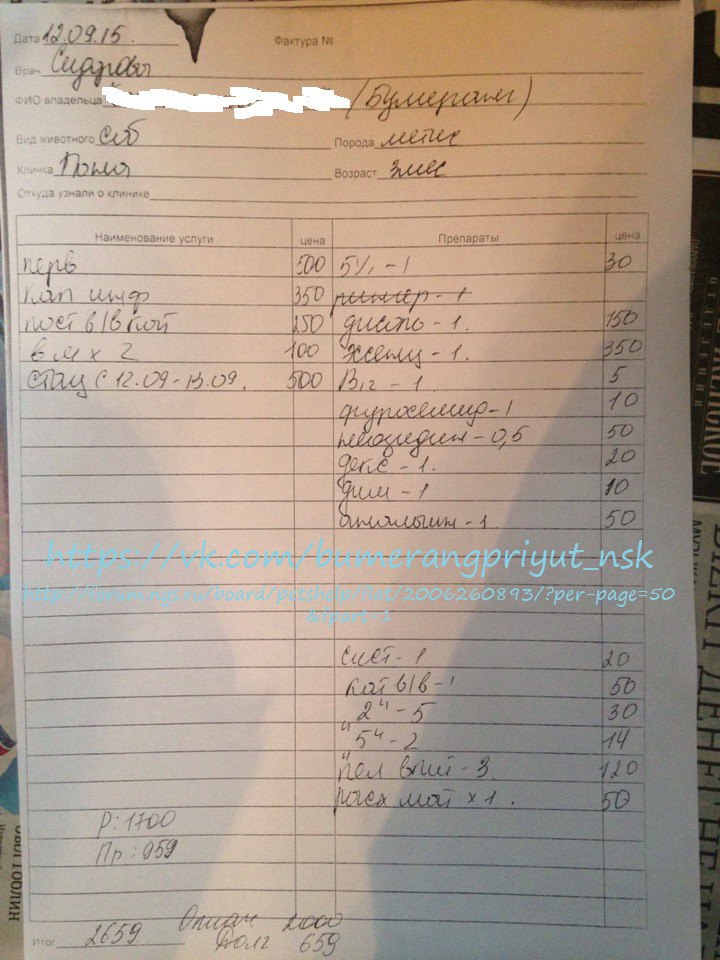 Дата 12.09.15. Фактура №
Врач Сидорова
ФИО владельца (Бумеранг)
Вид животного соб Порода метис
Кличка Возраст 3мес
Откуда узнали о клинике
Наименование услуги цена Препараты цена
перв 500 5% - 1 30
кап инф 350 - 1
пост в/в кат 250 - 1. 150
в м х 2 100 - 1. 350
стац с 12.09-13.09. 500 В12 - 1 5
фуросемид - 1 10
- 0,5 50
декс - 1. 20
дим - 1 10
анальгин - 1. 50
https://vk.com/bumerangpriyut_nsk
http://forum.ngs.ru/board/petshelp/flat/2006260893/?per-page=50
&fpart=1
сист - 1 20
кат в/в - 1 50
" 2" - 5 30
" 5" - 2 14
пел впит - 3. 120
расх мат х 1. 50
Р: 1700
Пр: 959
Итог 2659. Оплач. 2000
Долг 659